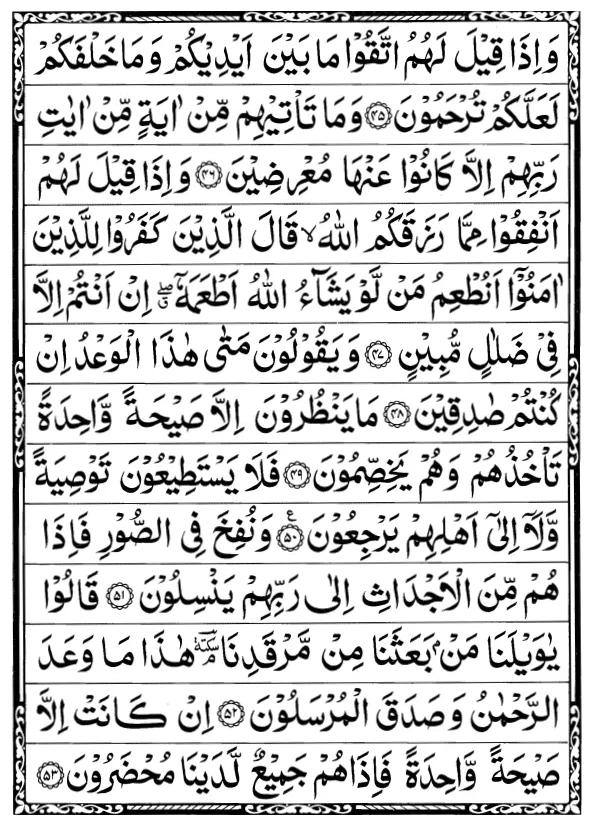 وَاِذَا قِيْلَ لَهُمُ اتَّقُوْا مَا بَيْنَ اَيْدِيْكُمْ وَمَا خَلْفَكُمْ
لَعَلَّكُمْ تُرْحَمُوْنَ ﴿۴۵﴾ وَمَا تَاْتِيْهِمْ مِّنْ اٰيَةٍ مِّنْ اٰيٰتِ
رَبِّهِمْ اِلَّا كَانُوْا عَنْهَا مُعْرِضِيْنَ ﴿۴۶﴾ وَاِذَا قِيْلَ لَهُمْ
اَنْفِقُوْا مِمَّا رَزَقَكُمُ اللّٰهُ ۙ قَالَ الَّذِيْنَ كَفَرُوْا لِلَّذِيْنَ
اٰمَنُوْٓا اَنُطْعِمُ مَنْ لَّوْ يَشَآءُ اللّٰهُ اَطْعَمَهٗٓ ۖۗ اِنْ اَنْتُمْ اِلَّا
فِيْ ضَلٰلٍ مُّبِيْنٍ ﴿۴۷﴾ وَيَقُوْلُوْنَ مَتٰى هٰذَا الْوَعْدُ اِنْ
كُنْتُمْ صٰدِقِيْنَ ﴿۴۸﴾ مَا يَنْظُرُوْنَ اِلَّا صَيْحَةً وَّاحِدَةً
تَاْخُذُهُمْ وَهُمْ يَخِصِّمُوْنَ ﴿۴۹﴾ فَلَا يَسْتَطِيْعُوْنَ تَوْصِيَةً
وَّلَآ اِلٰٓى اَهْلِهِمْ يَرْجِعُوْنَ ﴿۵۰﴾ ع وَنُفِخَ فِي الصُّوْرِ فَاِذَا
هُمْ مِّنَ الْاَجْدَاثِ اِلٰى رَبِّهِمْ يَنْسِلُوْنَ ﴿۵۱﴾ قَالُوْا
يٰوَيْلَنَا مَنْۢ بَعَثَنَا مِنْ مَّرْقَدِنَا ۘ سكتة هٰذَا مَا وَعَدَ
الرَّحْمٰنُ وَصَدَقَ الْمُرْسَلُوْنَ ﴿۵۲﴾ اِنْ كَانَتْ اِلَّا
صَيْحَةً وَّاحِدَةً فَاِذَا هُمْ جَمِيْعٌ لَّدَيْنَا مُحْضَرُوْنَ ﴿۵۳﴾